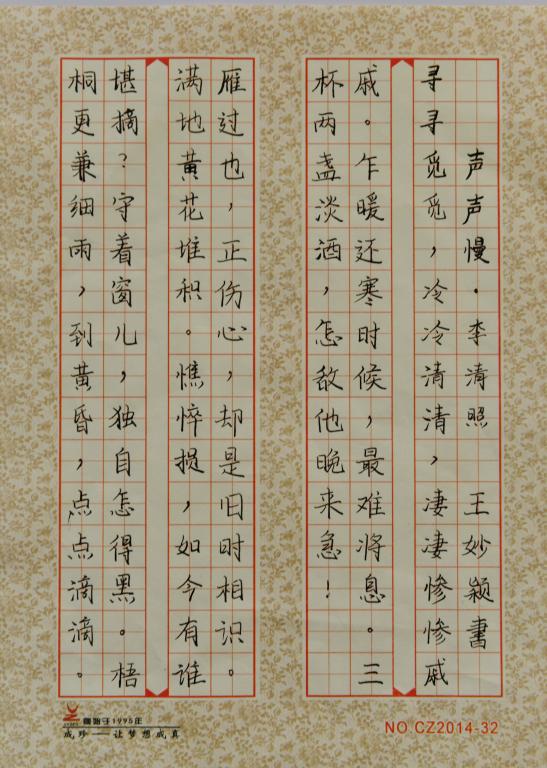 声声慢·李清照 王妙颖書
寻寻觅觅，冷冷清清，凄凄惨惨戚
戚。乍暖还寒时候，最难将息。三
杯两盏淡酒，怎敌他晚来急！
雁过也，正伤心，却是旧时相识。
满地黄花堆积。憔悴损，如今有谁
堪摘？守着窗儿，独自怎得黑。梧
桐更兼细雨，到黄昏，点点滴滴。
始于1995年
成珍——让梦想成真
NO.CZ2014-32